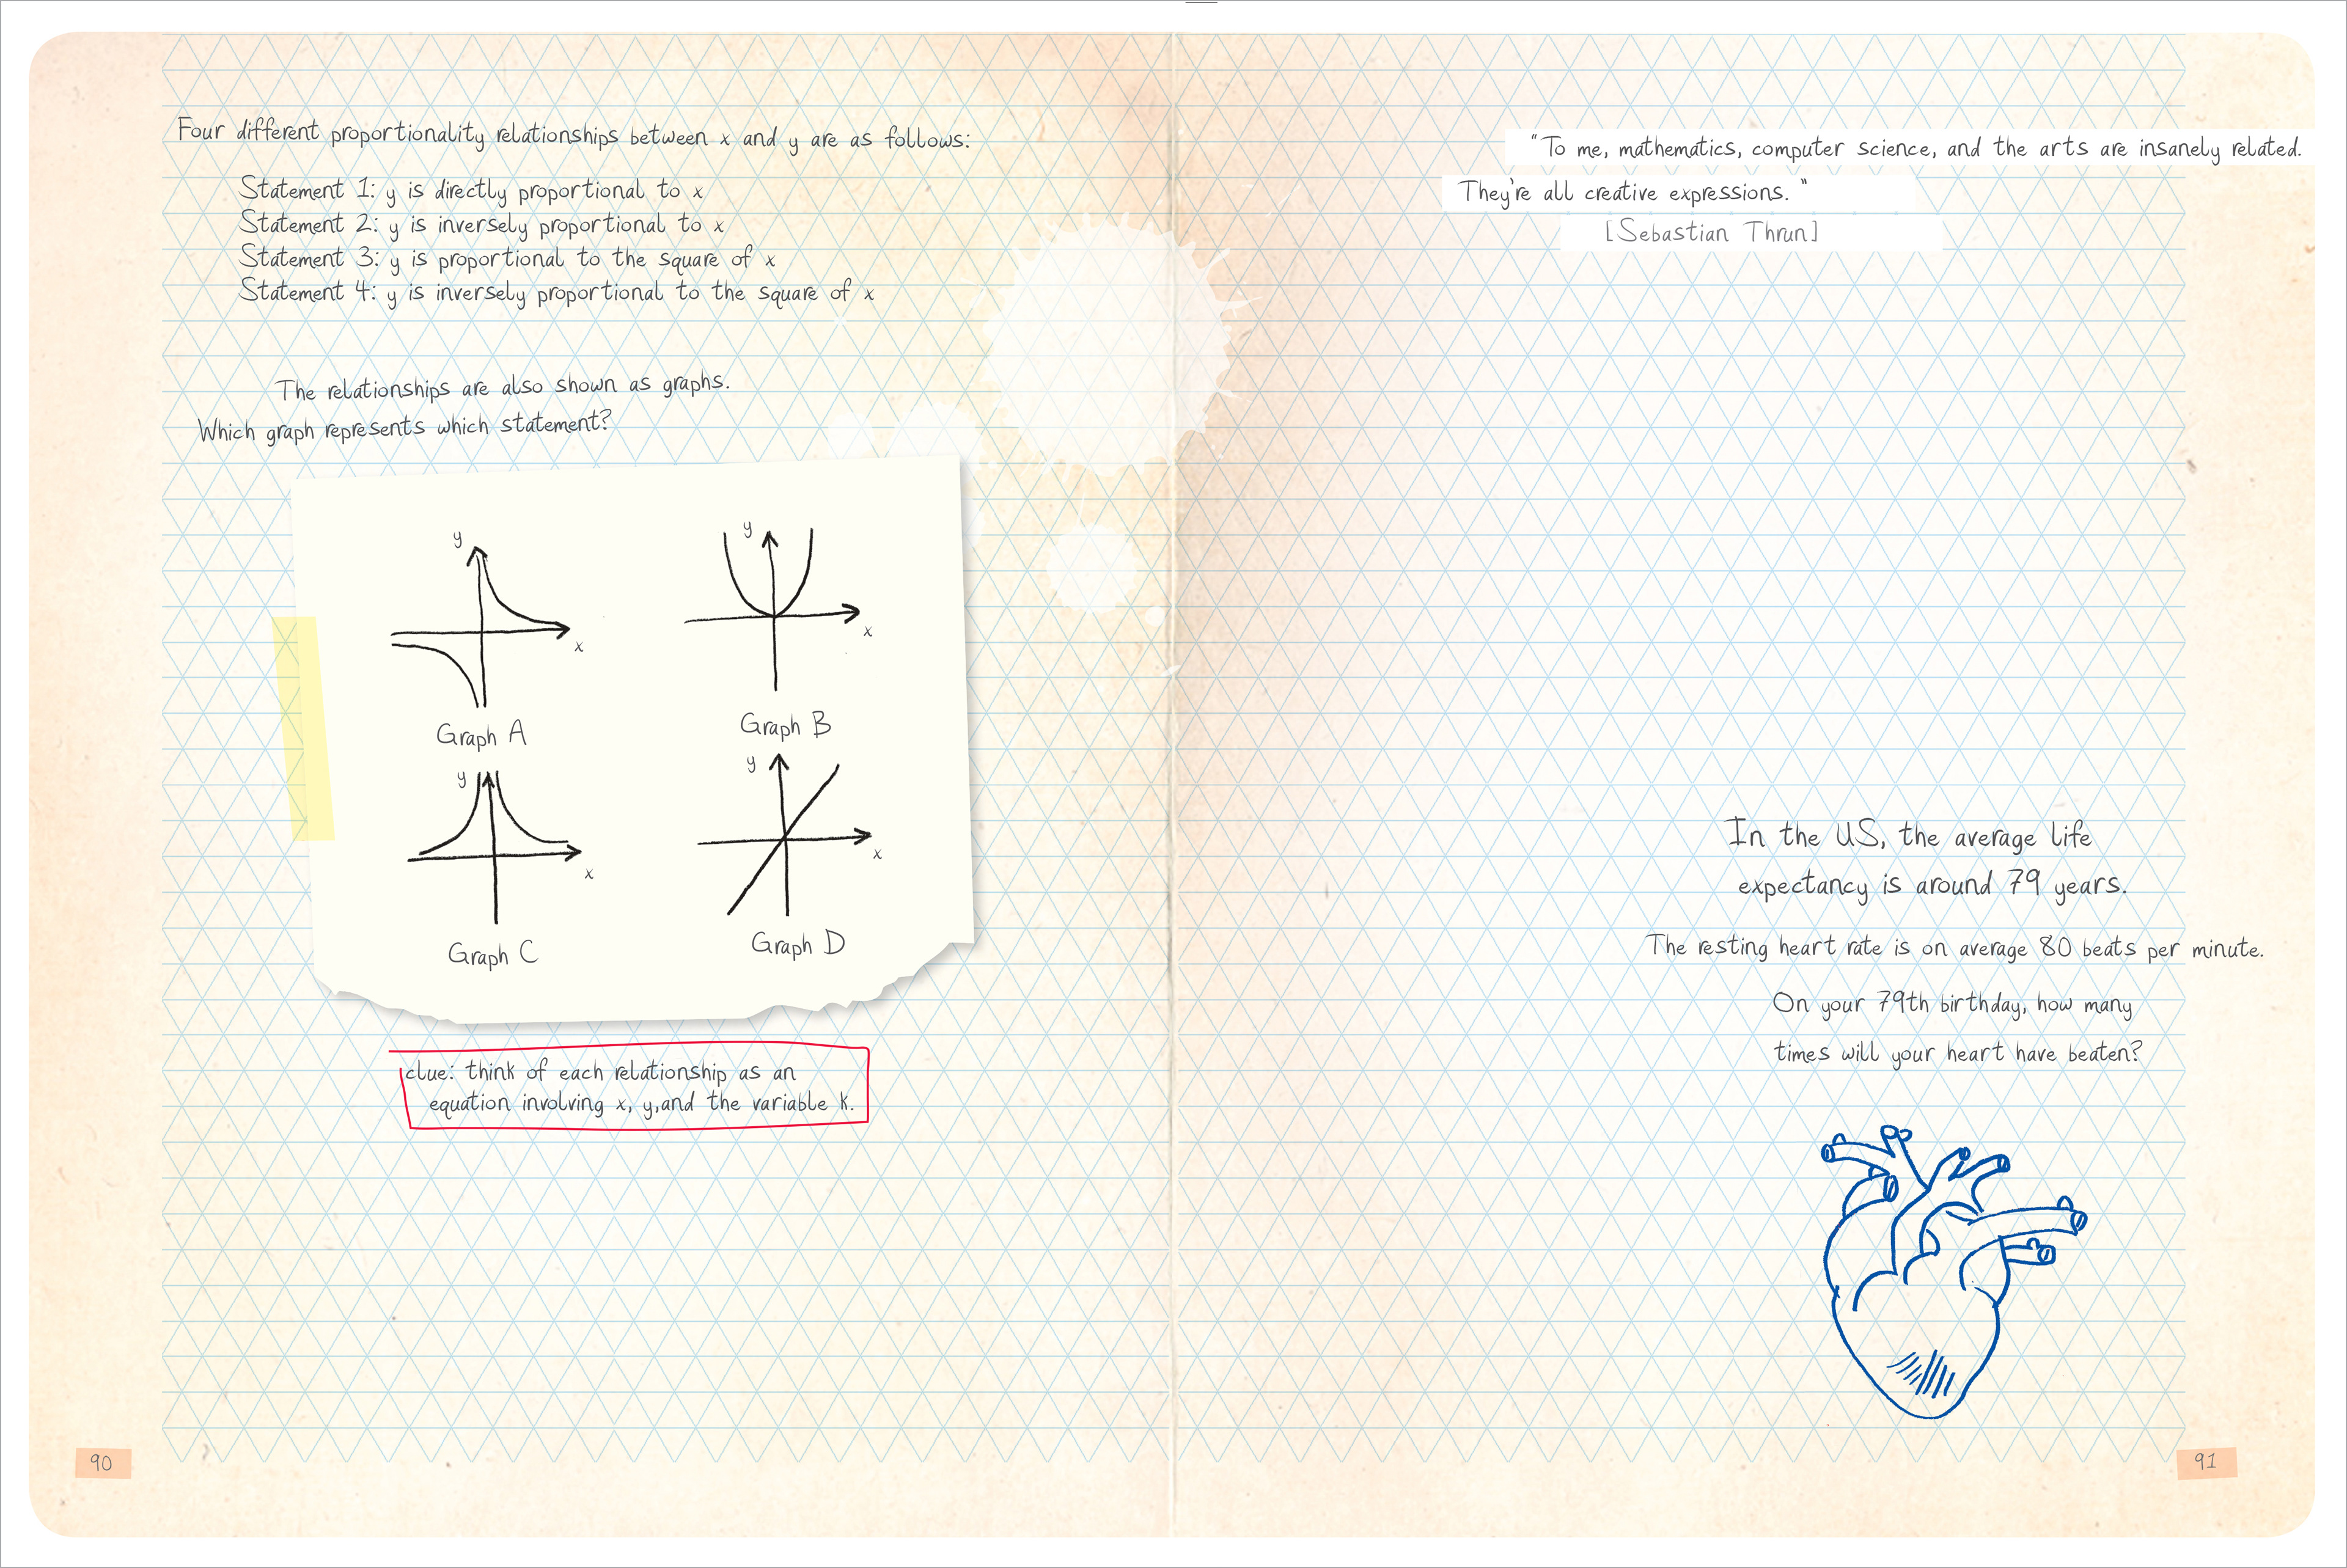 Four different proportionality relationships between x and y are as follows:
Statement 1: y is directly proportional to x
Statement 2: y is inversely proportional to x
Statement 3: y is proportional to the square of x
Statement 4: y is inversely proportional to the square of x
The relationships are also shown as graphs.
Which graph represents which statement?
y
x
Graph A
y
x
Graph B
y
x
Graph C
y
x
Graph D
clue: think of each relationship as an
equation involving x, y,and the variable k.
90
"To me, mathematics, computer science, and the arts are insanely related.
They're all creative expressions."
[Sebastian Thrun]
In the US, the average life
expectancy is around 79 years.
The resting heart rate is on average 80 beats per minute.
On your 79th birthday, how many
times will your heart have beaten?
91